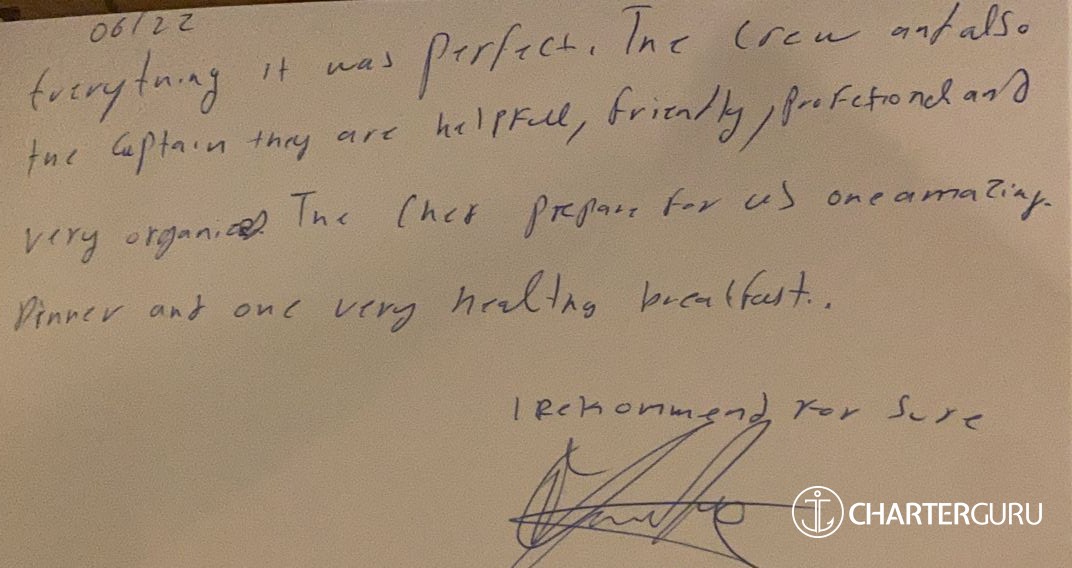 06/22
Everything it was perfect. The Crew and also
the Captain they are helpfull, friendly, profetional and
very organized. The Chef prepare for us one amazing
Dinner and one very healthy breakfast..
I Rekommend for Sure
CHARTERGURU